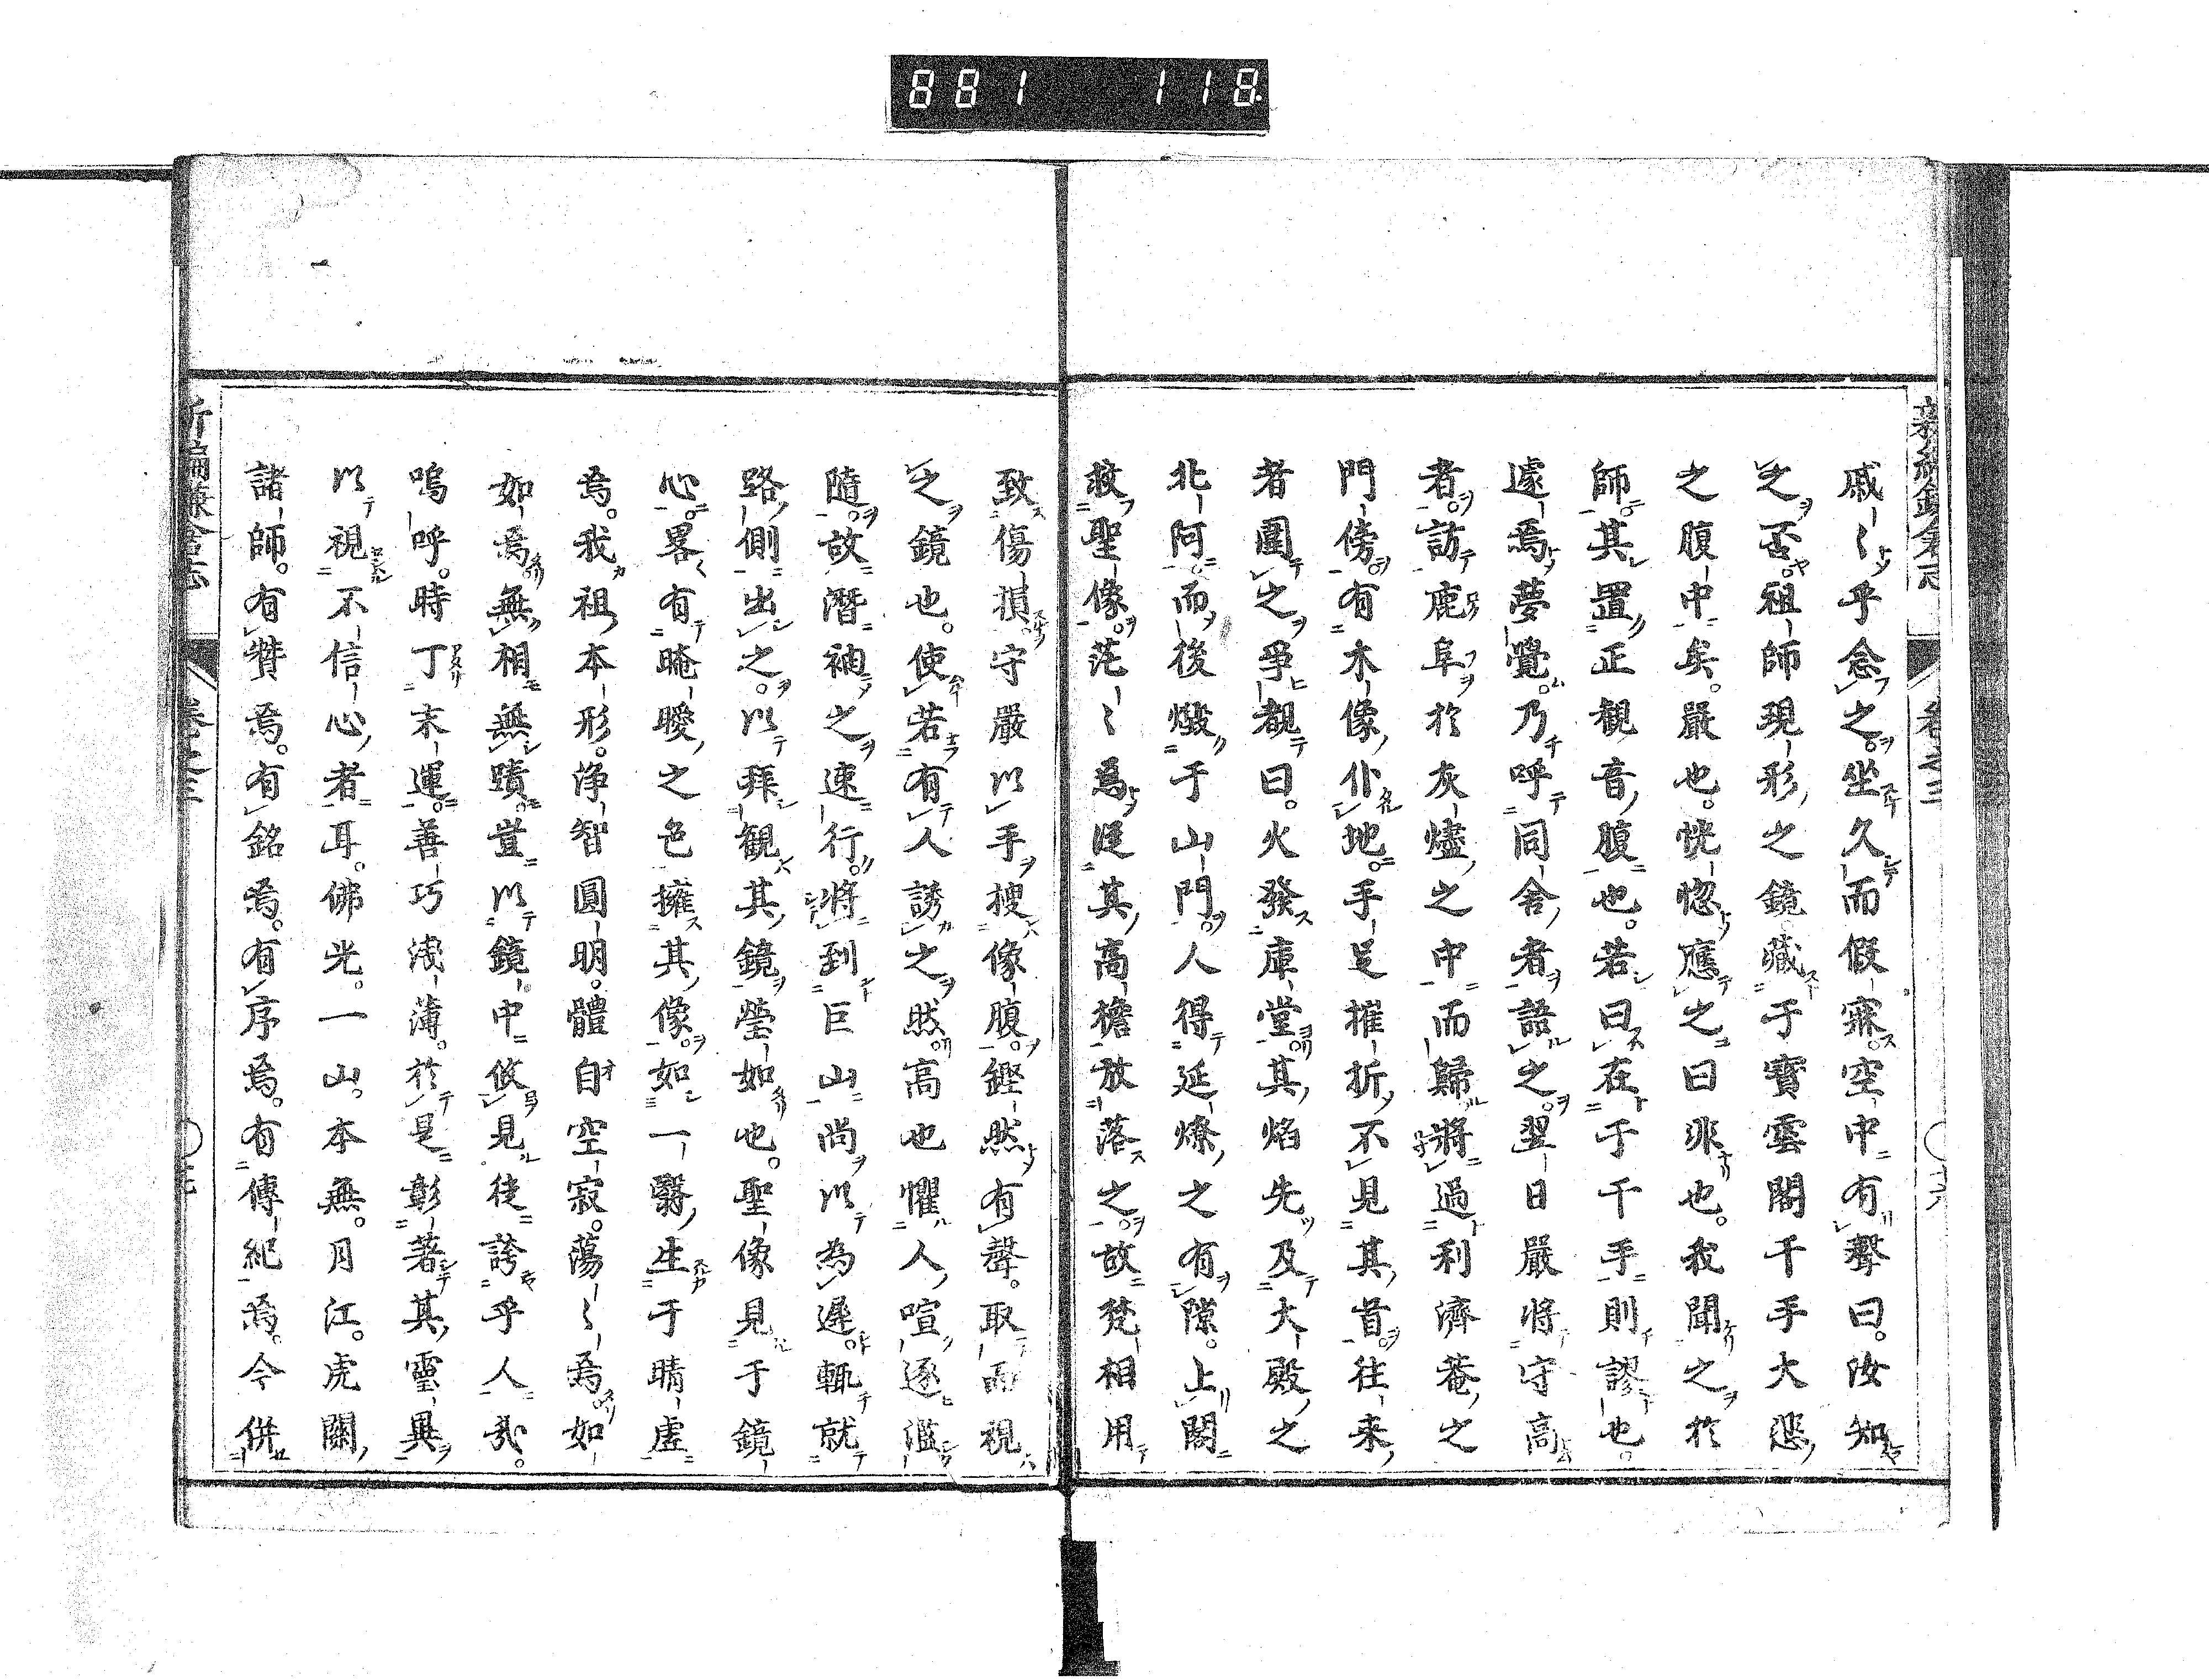 881 118
戚〻乎念之。坐久而假寐。空中有聲曰。汝知
之否。祖師現形之鏡。藏于寶雲閣千手大悲
之腹中矣。嚴也。恍惚應之曰非也。我聞之於
師。其置正觀音腹也。若曰在于千手則謬也。
遽焉夢覺。乃呼同舍者語之。翌日嚴將守高
者。訪鹿阜於灰燼之中而歸。將過利濟菴之
門傍有木像仆地。手足摧折不見其首。往来
者圍之爭覩曰。火發庫堂。其焰先及大殿之
北阿。而後燬于山門。人得延燎之有隙。上閣
救聖像。茫〻焉從其高檐放落之。故甃相用
致傷損。守嚴以手搜像腹。鏗然有聲。取而視
之鏡也。使若有人誘之然。高也懼人喧逐濫
隨。故潛袖之速行。將到巨山尚以為遲。輒就
路側出之。以拜觀其鏡瑩如也。聖像見于鏡
心。畧有晻曖之色擁其像。如一翳生于晴虛
焉。我祖本形。淨智圓明。體自空寂。蕩〻焉。如
如焉。無相無蹟。豈以鏡中攸見徒誇乎人哉。
嗚呼。時丁末運。善巧淺薄。於是彰著其靈異
以視不信心者耳。佛光。一山。本無。月江。虎關
諸師。有贊焉。有銘焉。有序焉。有傳紀焉。今併
卷之三